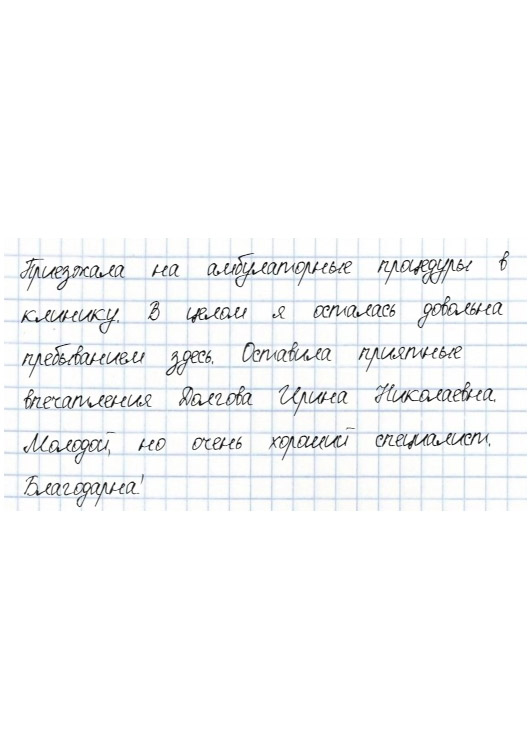 Приезжала на амбулаторные процедуры в
клинику. В целом я осталась довольна
пребыванием здесь. Оставила приятные
впечатления Долгова Ирина Николаевна.
Молодой, но очень хороший специалист.
Благодарна!